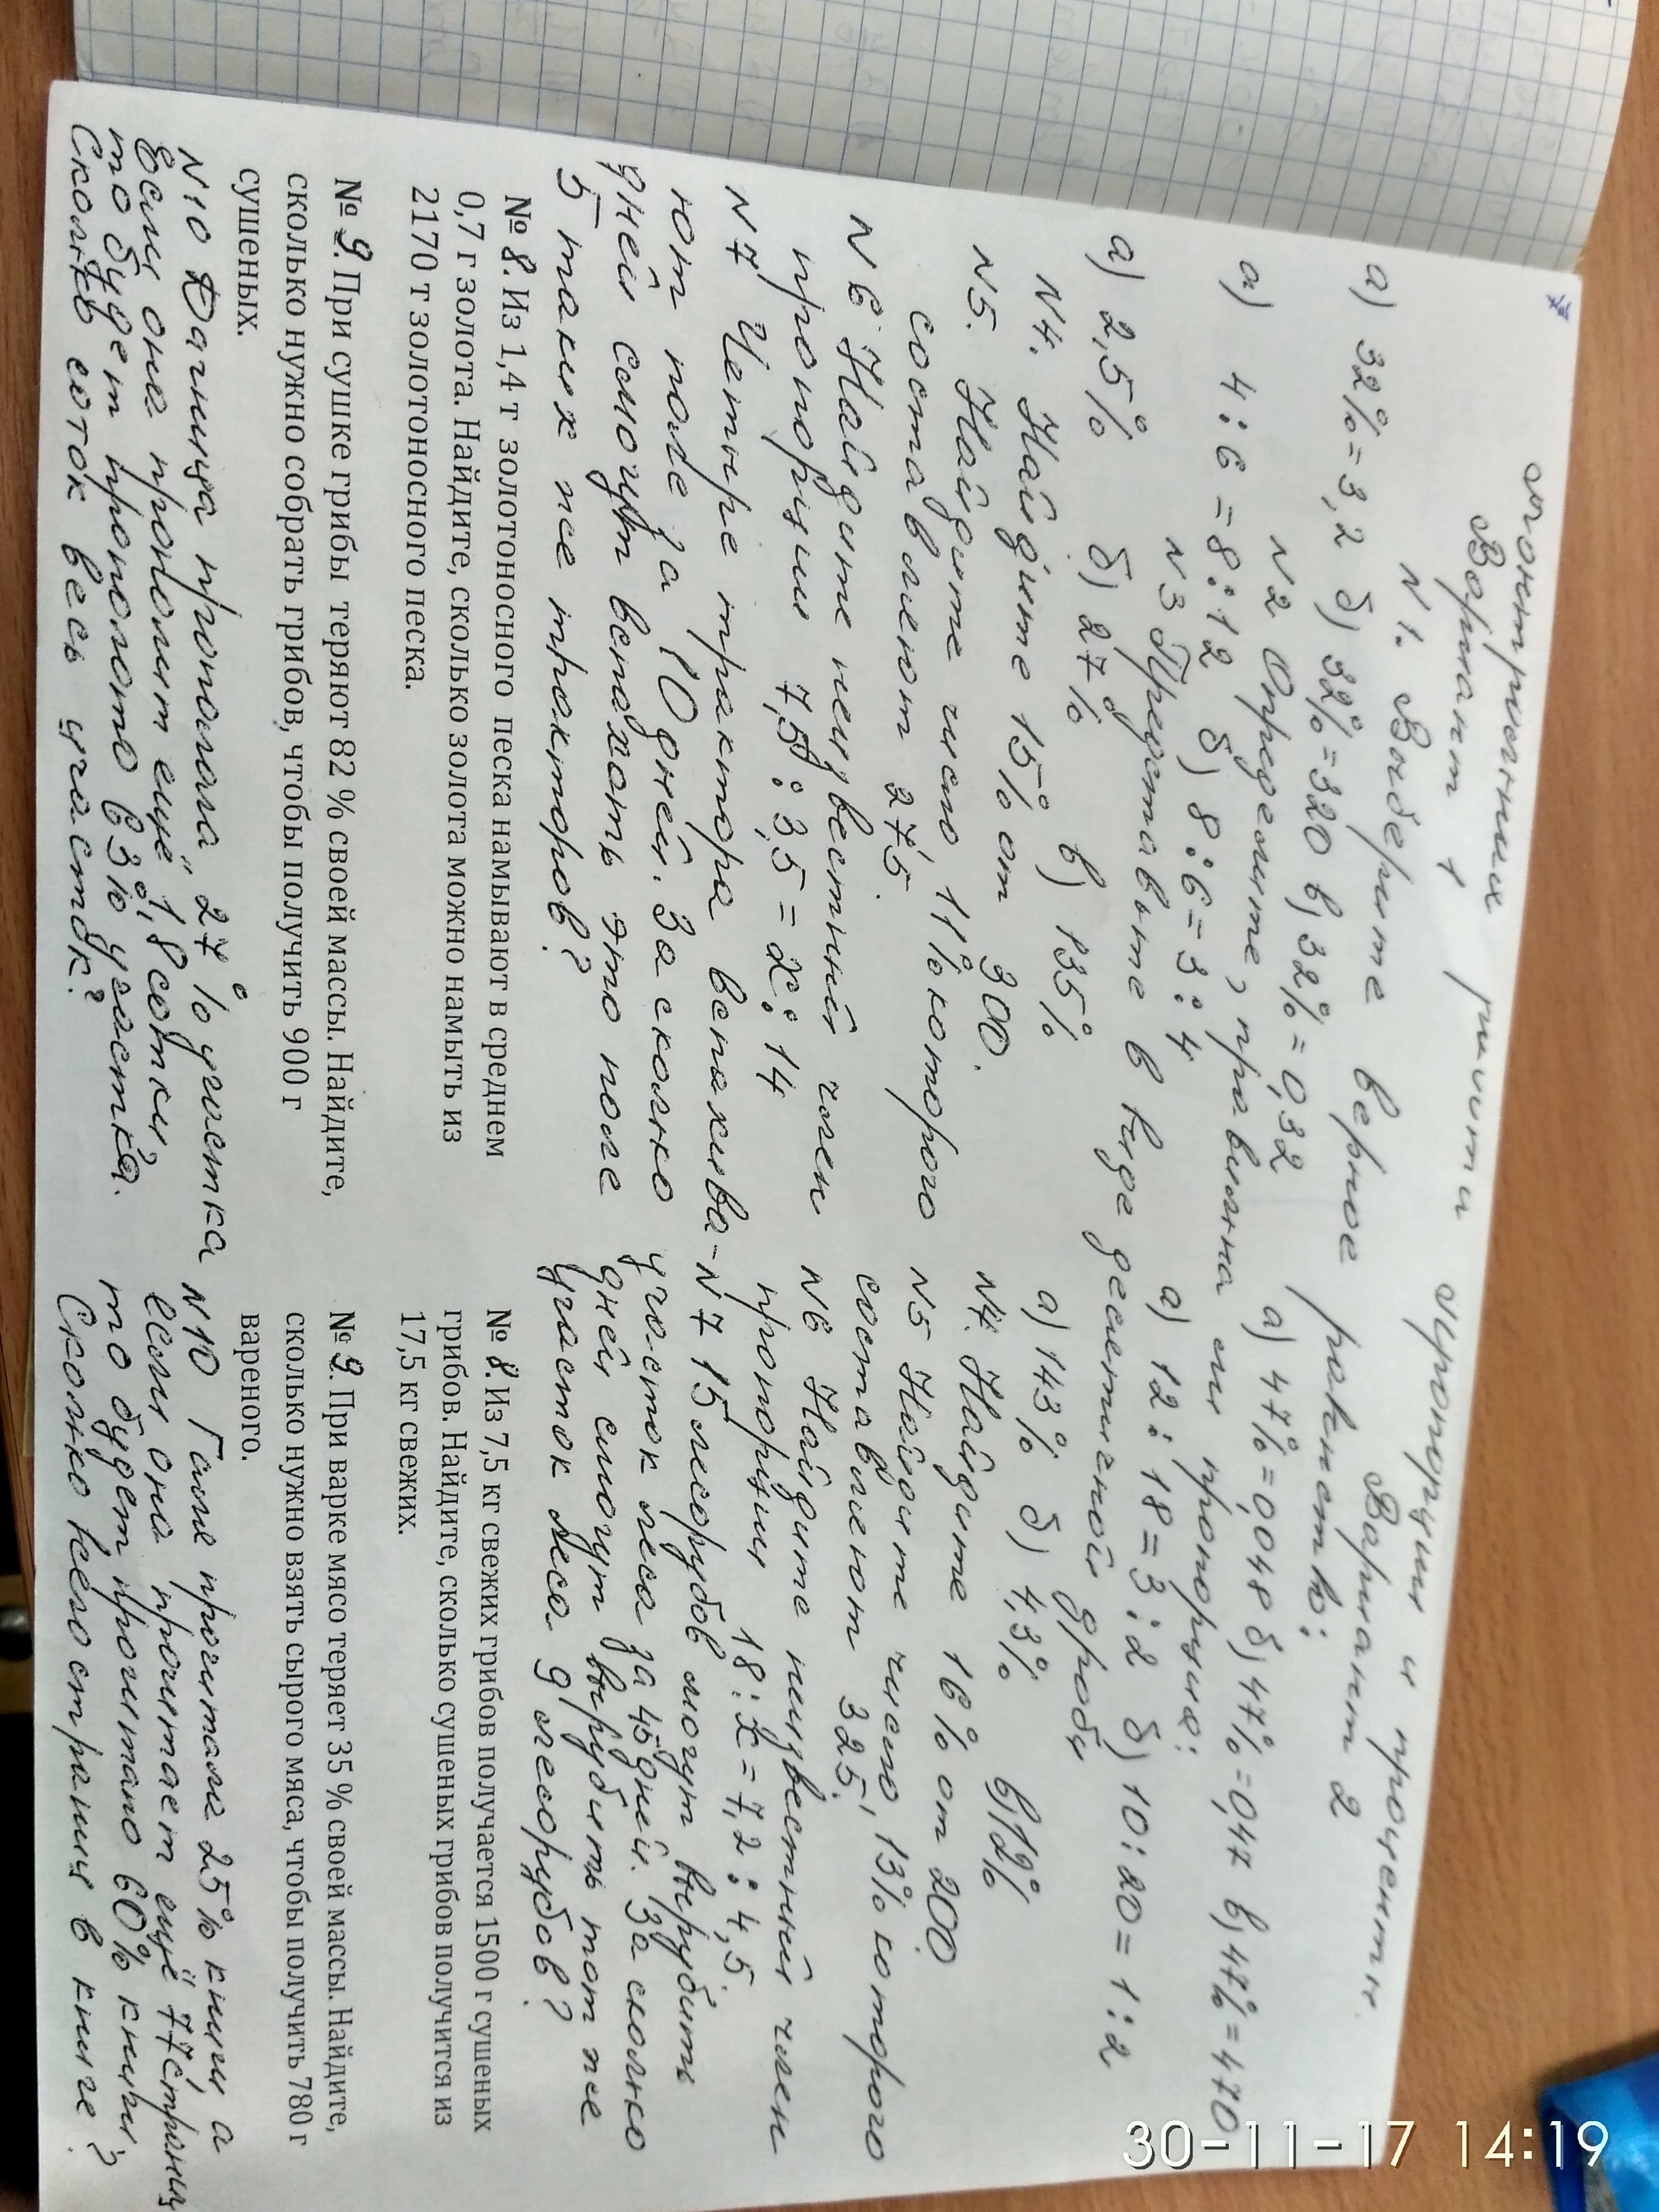 контрольных работы пропорции и проценты.
Вариант 1
N 1. Выберите верное равенство:
а) 32% = 3,2 б) 32% = 320 в) 32% = 0,32
N 2 Определите, правильна ли пропорция:
а) 4 : 6 = 8 : 12 б) 8 : 6 = 3 : 4
N 3 Представьте в виде десятичной дроби
а) 2,5% б) 27% в) 135%
N 4. Найдите 15% от 300.
N 5. Найдите число, 11% которого
составляют 275.
N 6 Найдите неизвестный член
пропорции 7,5 : 3,5 = x : 14
N 7 Четыре трактора вспахива-
ют поле за 10 дней. За сколько
дней смогут вспахать это поле
5 таких же тракторов?
№ 8. Из 1,4 т золотоносного песка намывают в среднем
0,7 г золота. Найдите, сколько золота можно намыть из
2170 т золотоносного песка.
№ 9. При сушке грибы теряют 82 % своей массы. Найдите,
сколько нужно собрать грибов, чтобы получить 900 г
сушеных.
N 10 Дачница прополола 27% участка
Если она прополит ещё 1,8 сотки,
то будет прополото 63% участка.
Сколько соток весь участок?
Вариант 2
а) 47% = 0,048 б) 47% = 0,47 в) 47% = 470
а) 12 : 18 = 3 : 2 б) 10 : 20 = 1 : 2
а) 143% б) 4,3% в) 12%
N 4. Найдите 16% от 200
N 5 Найдите число, 13% которого
составляют 325.
N 6 Найдите неизвестный член
пропорции 18 : x = 7,2 : 4,5
N 7 15 лесорубов могут вырубить
участок леса за 45 дней. За сколько
дней смогут вырубить тот же
участок леса 9 лесорубов?
№ 8. Из 7,5 кг свежих грибов получается 1500 г сушеных
грибов. Найдите, сколько сушеных грибов получится из
17,5 кг свежих.
№ 9. При варке мясо теряет 35 % своей массы. Найдите,
сколько нужно взять сырого мяса, чтобы получить 780 г
вареного.
N 10 Галя прочитала 25% книги а
если она прочитает ещё 77 страниц
то будет прочитано 60% книги.
Сколько всего страниц в книге?
30-11-17 14:19